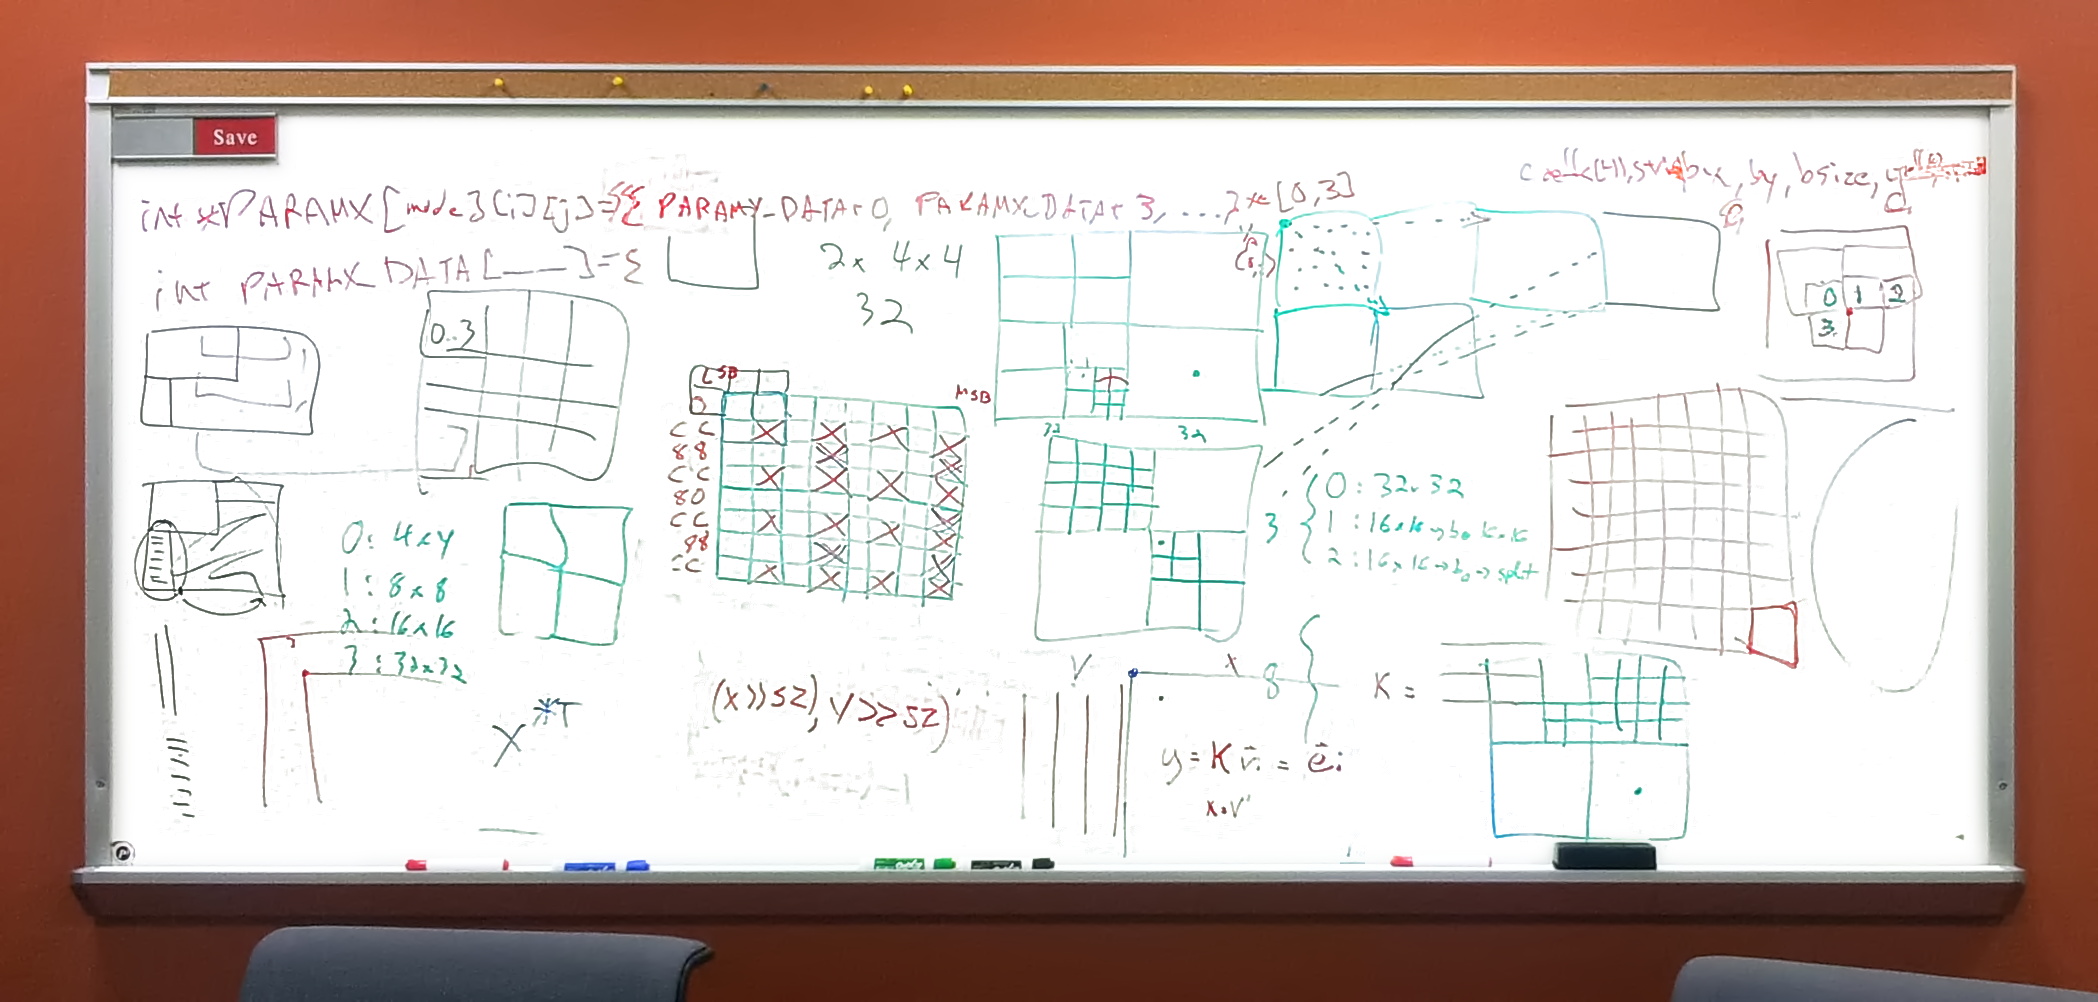 Save
int **PARAMX[mode][i][j]={{{ PARAMX_DATA+0, PARAMX_DATA+3, ...
[0,3]
by, bsize,
int PARAMX_DATA[___]={
2x 4x4
32
0 1 2
3
0..3
LSB
0
MSB
CC
88
CC
80
CC
88
CC
32
32
3
0: 32x32
1: 16x16
2: 16x16→b0→split
0: 4x4
1: 8x8
2: 16x16
3: 32x32
X*T
(x>>sz), y>>sz)
V
x
8
K =
y = K v̄i = ēi